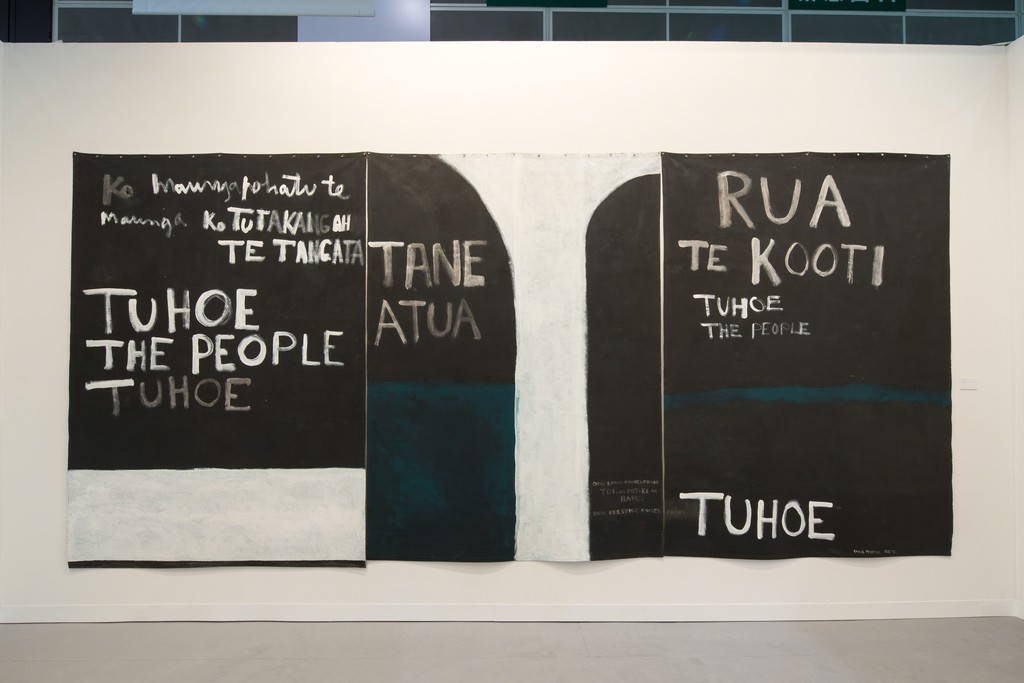 Ko Maungapohatu te
maunga Ko TUTAKANGAH
TE TANGATA
TUHOE
THE PEOPLE
TUHOE
TANE
ATUA
RUA
TE KOOTI
TUHOE
THE PEOPLE
TUHOE